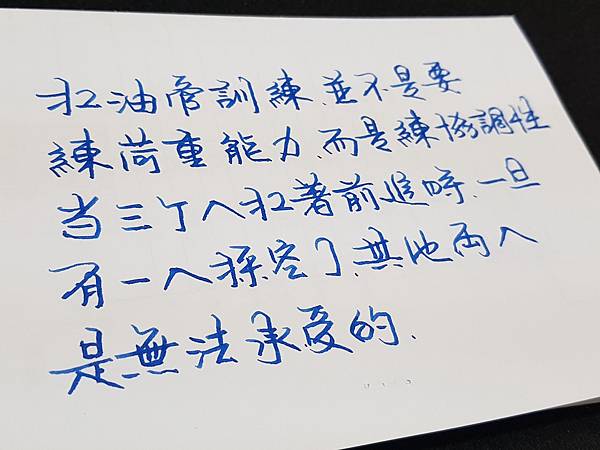 扛油管訓練,並不是要
練荷重能力,而是練協調性
当三个人扛著前進時,一旦
有一人採空了,其他両人
是無法承受的.